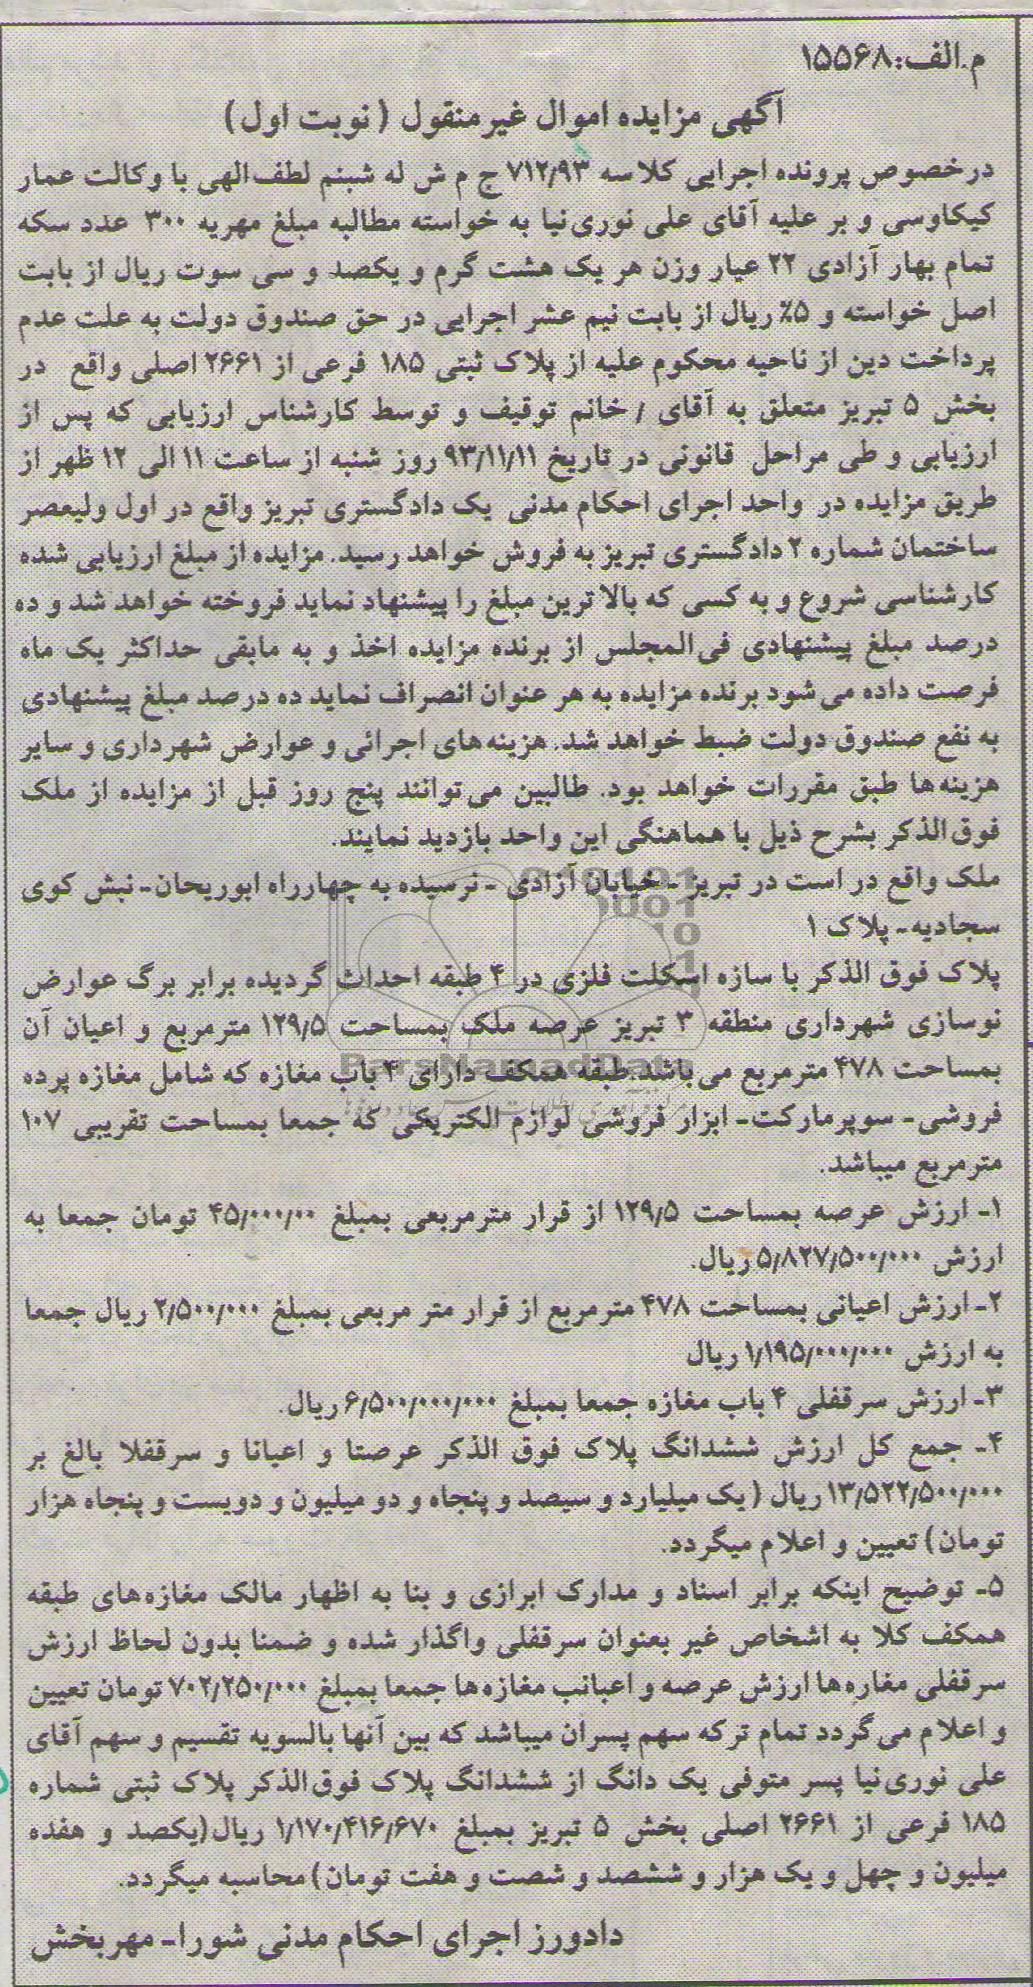 م.الف:۱۵۵۶۸
آگهی مزایده اموال غیرمنقول (نوبت اول)
درخصوص پرونده اجرایی کلاسه ۷۱۲٫۹۳ ج م ش له شبنم لطف‌الهی با وکالت عمار
کیکاوسی و بر علیه آقای علی نوری‌نیا به خواسته مطالبه مبلغ مهریه ۳۰۰ عدد سکه
تمام بهار آزادی ۲۲ عیار وزن هر یک هشت گرم و یکصد و سی سوت ریال از بابت
اصل خواسته و ۵٪ ریال از بابت نیم عشر اجرایی در حق صندوق دولت به علت عدم
پرداخت دین از ناحیه محکوم علیه از پلاک ثبتی ۱۸۵ فرعی از ۲۶۶۱ اصلی واقع در
بخش ۵ تبریز متعلق به آقای / خانم توقیف و توسط کارشناس ارزیابی که پس از
ارزیابی و طی مراحل قانونی در تاریخ ۹۳/۱۱/۱۱ روز شنبه از ساعت ۱۱ الی ۱۲ ظهر از
طریق مزایده در واحد اجرای احکام مدنی یک دادگستری تبریز واقع در اول ولیعصر
ساختمان شماره ۲ دادگستری تبریز به فروش خواهد رسید. مزایده از مبلغ ارزیابی شده
کارشناسی شروع و به کسی که بالاترین مبلغ را پیشنهاد نماید فروخته خواهد شد و ده
درصد مبلغ پیشنهادی فی‌المجلس از برنده مزایده اخذ و به مابقی حداکثر یک ماه
فرصت داده می‌شود برنده مزایده به هر عنوان انصراف نماید ده درصد مبلغ پیشنهادی
به نفع صندوق دولت ضبط خواهد شد. هزینه‌های اجرائی و عوارض شهرداری و سایر
هزینه‌ها طبق مقررات خواهد بود. طالبین می‌توانند پنج روز قبل از مزایده از ملک
فوق‌الذکر بشرح ذیل با هماهنگی این واحد بازدید نمایند.
ملک واقع در است در تبریز - خیابان آزادی - نرسیده به چهارراه ابوریحان- نبش کوی
سجادیه- پلاک ۱
پلاک فوق الذکر با سازه اسکلت فلزی در ۴ طبقه احداث گردیده برابر برگ عوارض
نوسازی شهرداری منطقه ۳ تبریز عرصه ملک بمساحت ۱۲۹٫۵ مترمربع و اعیان آن
بمساحت ۴۷۸ مترمربع می‌باشد.طبقه همکف دارای ۴ باب مغازه که شامل مغازه پرده
فروشی- سوپرمارکت- ابزار فروشی لوازم الکتریکی که جمعا بمساحت تقریبی ۱۰۷
مترمربع میباشد.
۱- ارزش عرصه بمساحت ۱۲۹٫۵ از قرار مترمربعی بمبلغ ۴۵/۰۰۰/۰۰ تومان جمعا به
ارزش ۵/۸۲۷/۵۰۰/۰۰۰ ریال.
۲- ارزش اعیانی بمساحت ۴۷۸ مترمربع از قرار متر مربعی بمبلغ ۲/۵۰۰/۰۰۰ ریال جمعا
به ارزش ۱/۱۹۵/۰۰۰/۰۰۰ ریال
۳- ارزش سرقفلی ۴ باب مغازه جمعا بمبلغ ۶/۵۰۰/۰۰۰/۰۰۰ ریال.
۴- جمع کل ارزش ششدانگ پلاک فوق الذکر عرصتا و اعیانا و سرقفلا بالغ بر
۱۳/۵۲۲/۵۰۰/۰۰۰ ریال (یک میلیارد و سیصد و پنجاه و دو میلیون و دویست و پنجاه هزار
تومان) تعیین و اعلام میگردد.
۵- توضیح اینکه برابر اسناد و مدارک ابرازی و بنا به اظهار مالک مغازه‌های طبقه
همکف کلا به اشخاص غیر بعنوان سرقفلی واگذار شده و ضمنا بدون لحاظ ارزش
سرقفلی مغاره‌ها ارزش عرصه و اعبانب مغازه‌ها جمعا بمبلغ ۷۰۲/۲۵۰/۰۰۰ تومان تعیین
و اعلام می‌گردد تمام ترکه سهم پسران میباشد که بین آنها بالسویه تقسیم و سهم آقای
علی نوری‌نیا پسر متوفی یک دانگ از ششدانگ پلاک فوق‌الذکر پلاک ثبتی شماره
۱۸۵ فرعی از ۲۶۶۱ اصلی بخش ۵ تبریز بمبلغ ۱/۱۷۰/۴۱۶/۶۷۰ ریال(یکصد و هفده
میلیون و چهل و یک هزار و ششصد و شصت و هفت تومان) محاسبه میگردد.
دادورز اجرای احکام مدنی شورا- مهربخش
ParsNamadData